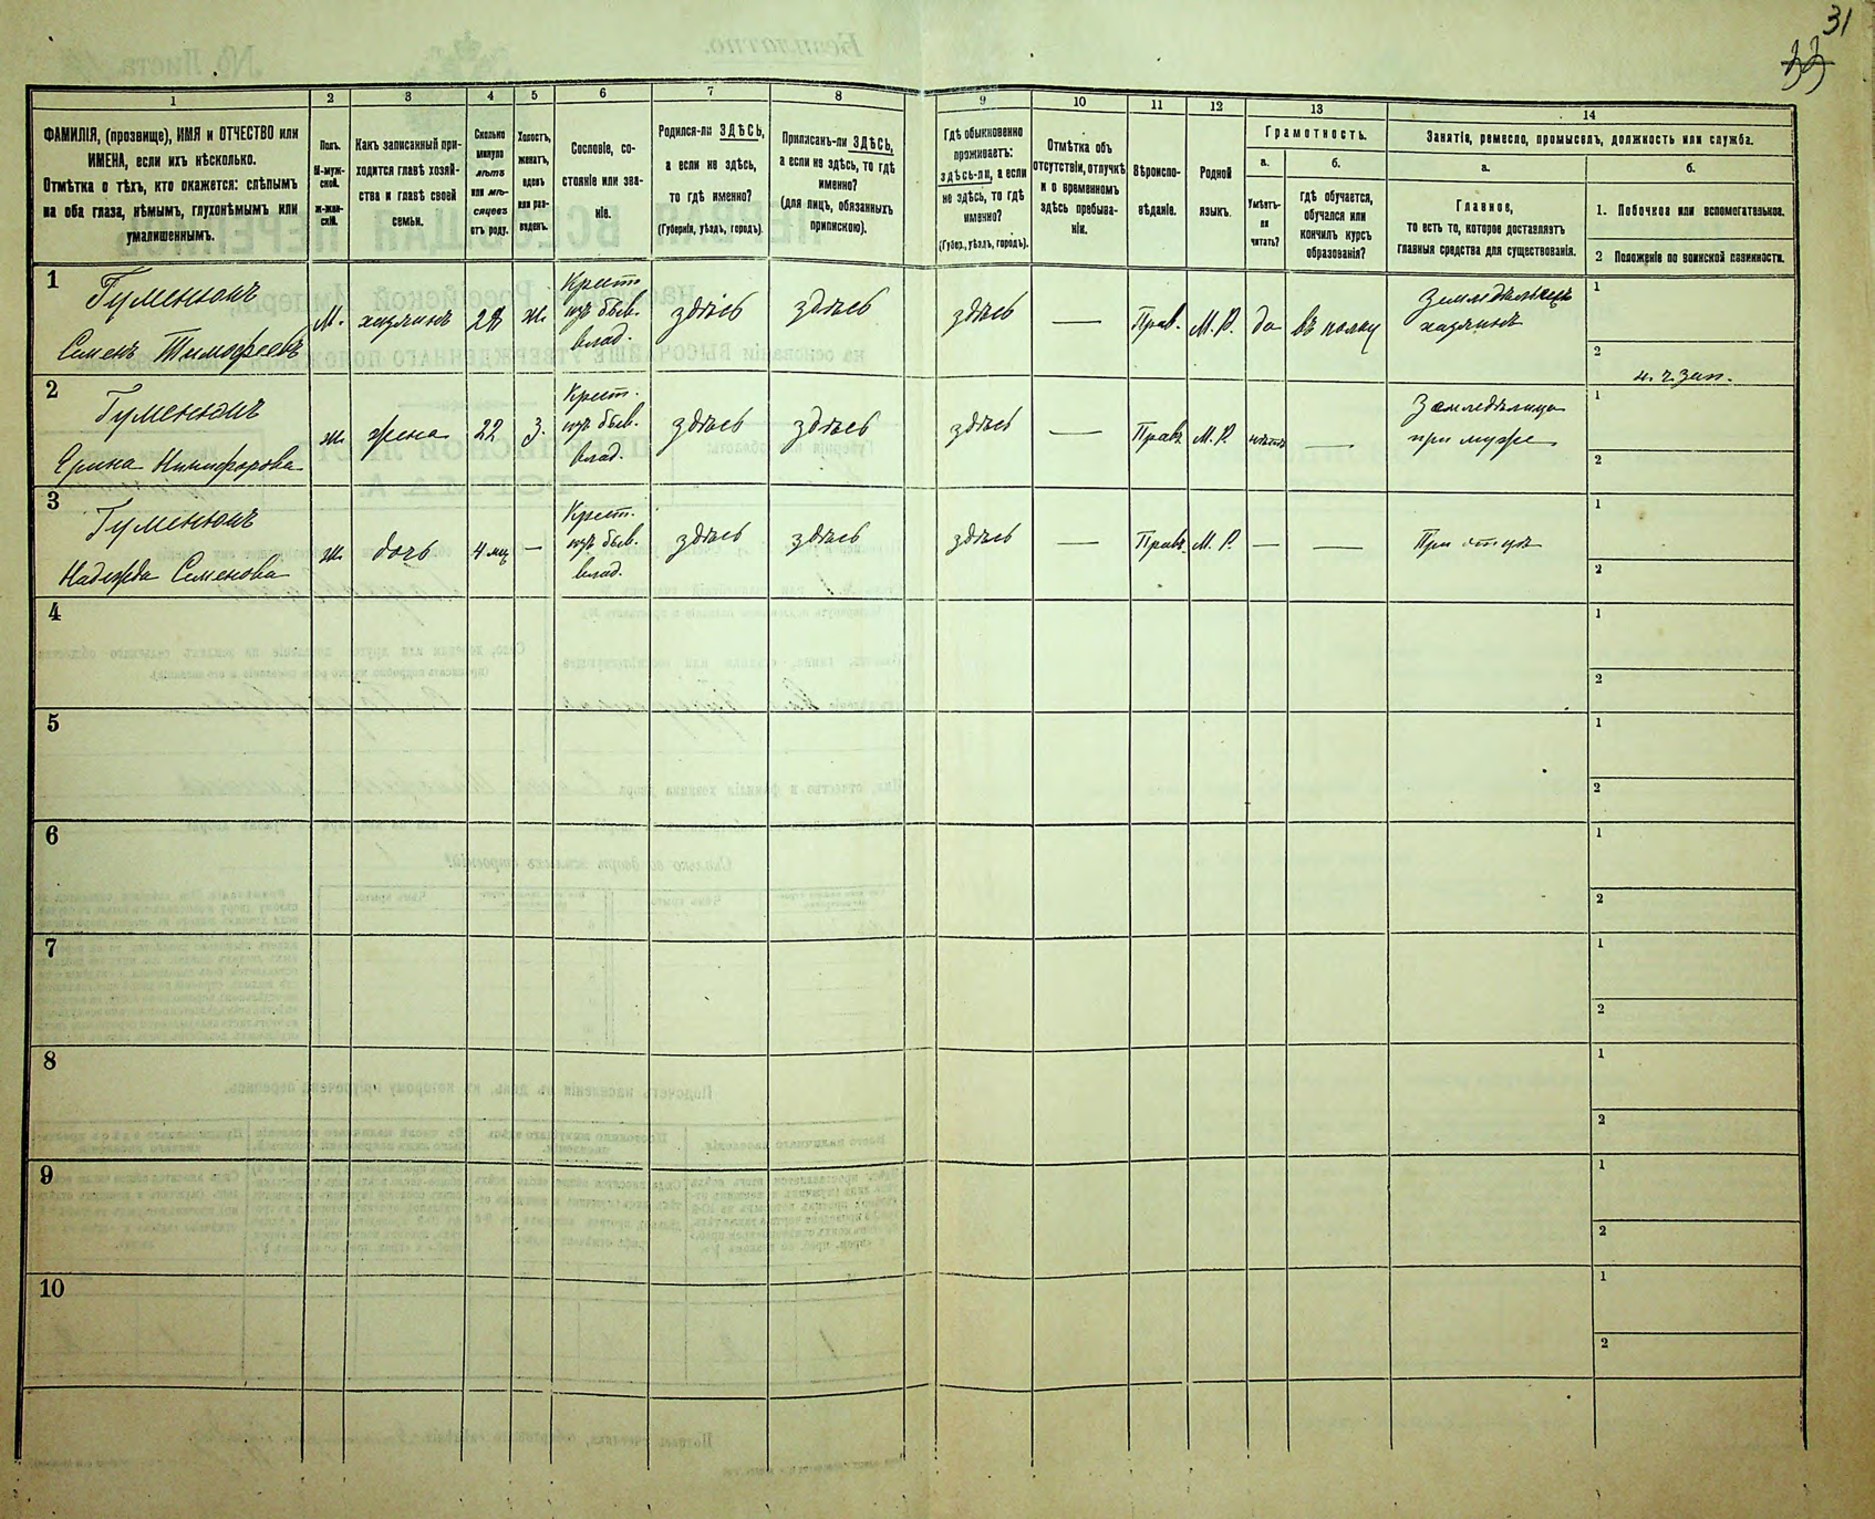 31
33
1 2 3 4 5 6 7 8 9 10 11 12 13 14
ФАМИЛІЯ, (прозвище), ИМЯ и ОТЧЕСТВО или
ИМЕНА, если ихъ нѣсколько.
Отмѣтка о тѣхъ, кто окажется: слѣпымъ
на оба глаза, нѣмымъ, глухонѣмымъ или
умалишеннымъ.
Полъ.
М-муж-
ской.
ж-жен-
скій.
Какъ записанный при-
ходится главѣ хозяй-
ства и главѣ своей
семьи.
Сколько
минуло
лѣтъ
или мѣ-
сяцевъ
отъ роду.
Холостъ,
женатъ,
вдовъ
или раз-
веденъ.
Сословіе, со-
стояніе или зва-
ніе.
Родился-ли ЗДѢСЬ,
а если не здѣсь,
то гдѣ именно?
(Губернія, уѣздъ, городъ).
Приписанъ-ли ЗДѢСЬ,
а если не здѣсь, то гдѣ
именно?
(для лицъ, обязанныхъ
припискою).
Гдѣ обыкновенно
проживаетъ:
здѣсь-ли, а если
не здѣсь, то гдѣ
именно?
(Губер., уѣздъ, городъ).
Отмѣтка объ
отсутствіи, отлучкѣ
и о временномъ
здѣсь пребыва-
ніи.
Вѣроиспо-
вѣданіе.
Родной
языкъ.
Грамотность.
а.
Умѣетъ-
ли
читать?
б.
Гдѣ обучается,
обучался или
кончилъ курсъ
образованія?
Занятіе, ремесло, промыселъ, должность или служба.
а.
Главное,
то есть то, которое доставляетъ
главныя средства для существованія.
б.
1. Побочное или вспомогательное.
2 Положеніе по воинской повинности.
1
Гуменюкъ
Семенъ Тимофеевъ
М.
хозяинъ
28
ж.
Крест.
изъ быв.
влад.
здѣсь
здѣсь
здѣсь
—
Прав.
М. Р.
да
въ полку
Земледѣлецъ
хозяинъ
1
2
н. ч. зап.
2
Гуменюкъ
Ярина Никифорова
ж.
жена
22
З.
Крест.
изъ быв.
влад.
здѣсь
здѣсь
здѣсь
—
Прав.
М. Р.
нѣтъ
—
Земледѣлица
при мужѣ
1
2
3
Гуменюкъ
Надежда Семенова
ж.
дочь
4 мц
—
Крест.
изъ быв.
влад.
здѣсь
здѣсь
здѣсь
—
Прав.
М. Р.
—
—
При отцѣ
1
2
4
1
2
5
1
2
6
1
2
7
1
2
8
1
2
9
1
2
10
1
2